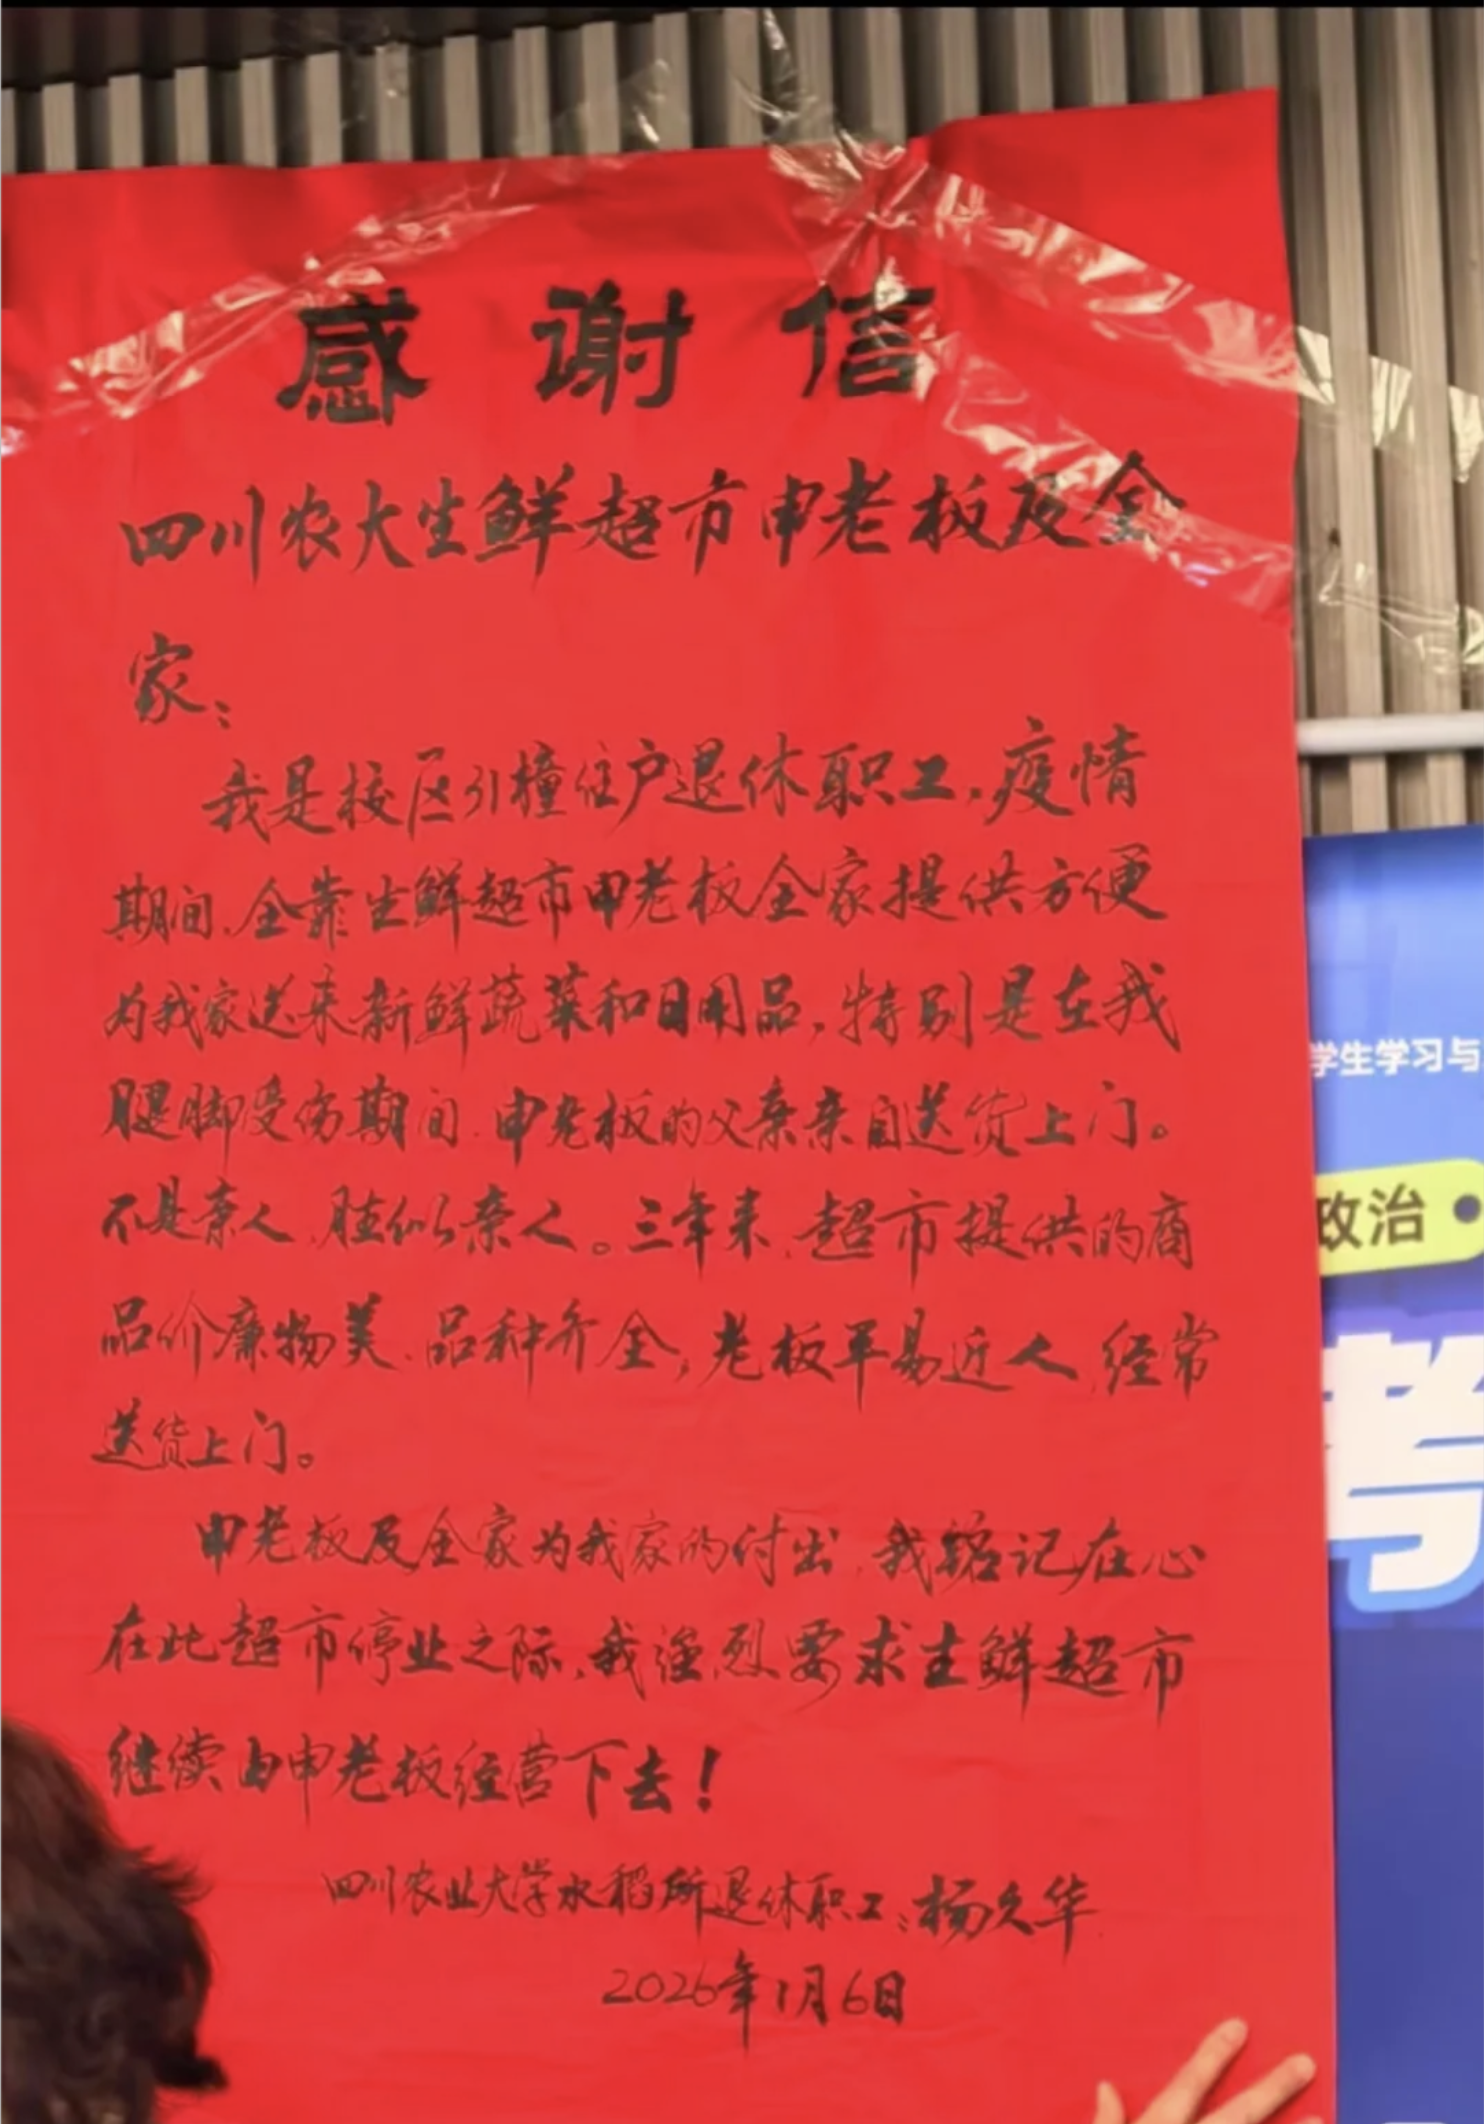 感谢信
四川农大生鲜超市申老板及全
家：
我是校区引撞住户退休职工，疫情
期间、全靠生鲜超市申老板全家提供方便
为我家送来新鲜蔬菜和日用品，特别是在我
腿脚受伤期间、申老板的父亲亲自送货上门。
不是亲人、胜似亲人。三年来、超市提供的商
品价廉物美、品种齐全，老板平易近人、经常
送货上门。
申老板及全家为我家的付出、我铭记在心
在此超市停业之际，我强烈要求生鲜超市
继续由申老板经营下去！
四川农业大学水稻所退休职工：杨久华
2026年1月6日
学生学习与
政治
考